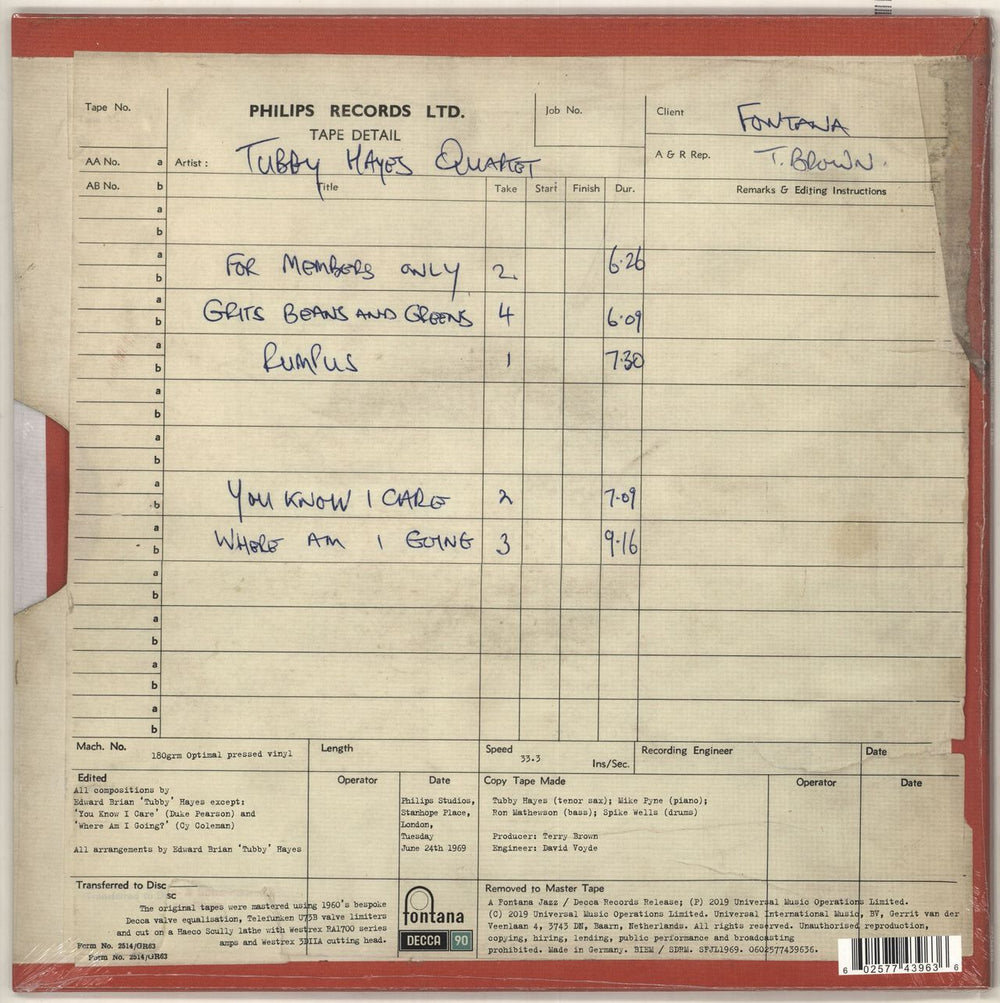 Tape No.
PHILIPS RECORDS LTD.
TAPE DETAIL
Job No.
Client FONTANA
AA No. a
Artist : TUBBY HAYES QUARTET
A & R Rep. T. BROWN.
AB No. b
Title Take Start Finish Dur. Remarks & Editing Instructions
a
b
a
FOR MEMBERS ONLY 2. 6.26
b
a
GRITS BEANS AND GREENS 4 6.09
b
a
RUMPUS 1 7.30
b
a
b
a
b
a
YOU KNOW I CARE 2 7.09
b
a
WHERE AM I GOING 3 9.16
b
a
b
a
b
a
b
a
b
Mach. No. 180grm Optimal pressed vinyl
Length
Speed 33.3 Ins/Sec.
Recording Engineer
Date
Edited
All compositions by
Edward Brian 'Tubby' Hayes except:
'You Know I Care' (Duke Pearson) and
'Where Am I Going?' (Cy Coleman)
All arrangements by Edward Brian 'Tubby' Hayes
Operator
Date
Philips Studios,
Stanhope Place,
London,
Tuesday
June 24th 1969
Copy Tape Made
Tubby Hayes (tenor sax); Mike Pyne (piano);
Ron Mathewson (bass); Spike Wells (drums)
Producer: Terry Brown
Engineer: David Voyde
Operator
Date
Transferred to Disc
SC
The original tapes were mastered using 1960's bespoke
Decca valve equalisation, Telefunken U73B valve limiters
and cut on a Haeco Scully lathe with Westrex RA1700 series
amps and Westrex 3DIIA cutting head.
Form No. 2514/GR63
Form No. 2514/GR63
fontana
DECCA 90
Removed to Master Tape
A Fontana Jazz / Decca Records Release; (P) 2019 Universal Music Operations Limited.
(C) 2019 Universal Music Operations Limited. Universal International Music, BV, Gerrit van der
Veenlaan 4, 3743 DN, Baarn, Netherlands. All rights reserved. Unauthorised reproduction,
copying, hiring, lending, public performance and broadcasting
prohibited. Made in Germany. BIEM / SDRM. SFJL1969. 0602577439636.
6 02577 43963 6